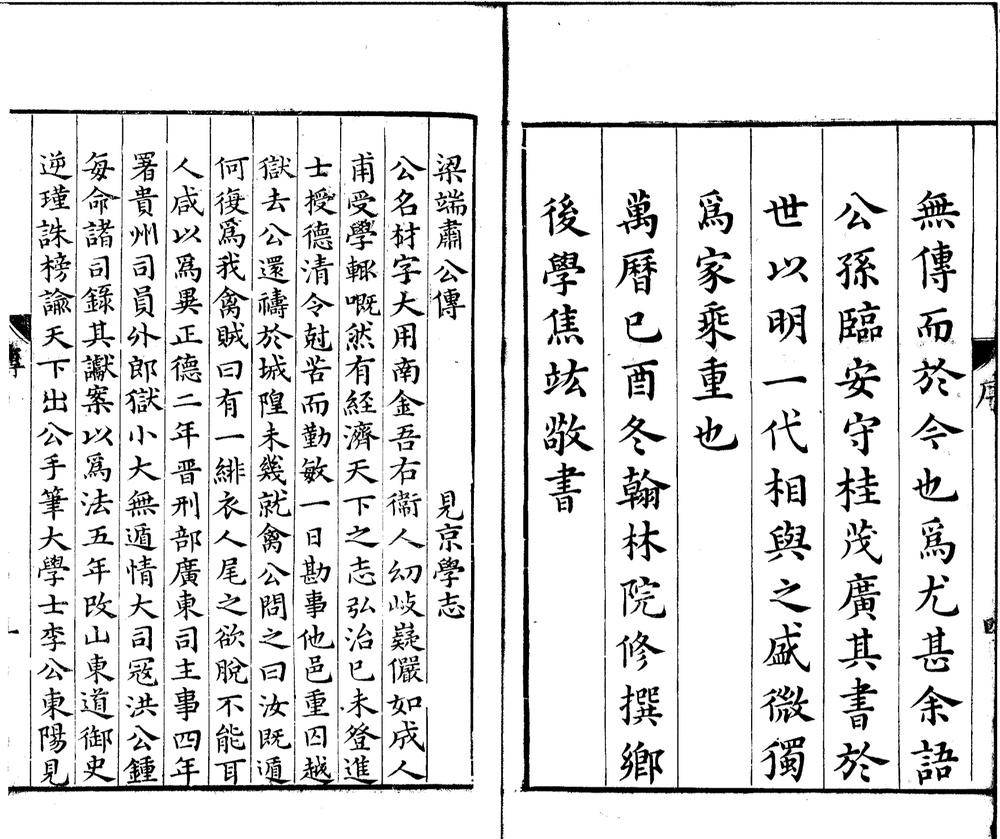 無傳而於今也爲尤甚余語
公孫臨安守桂茂廣其書於
世以明一代相與之盛微獨
爲家乘重也
萬曆已酉冬翰林院修撰鄉
後學焦竑敬書
序
梁端肅公傳 見京學志
公名材字大用南金吾右衞人幼岐嶷儼如成人
甫受學輙嘅然有經濟天下之志弘治已未登進
士授德清令尅苦而勤敏一日勘事他邑重囚越
獄去公還禱於城隍未幾就禽公問之曰汝既遁
何復爲我禽賊曰有一緋衣人尾之欲脫不能耳
人咸以爲異正德二年晋刑部廣東司主事四年
署貴州司員外郎獄小大無遁情大司冦洪公鍾
每命諸司錄其讞案以爲法五年改山東道御史
逆瑾誅榜諭天下出公手筆大學士李公東陽見
傳
一